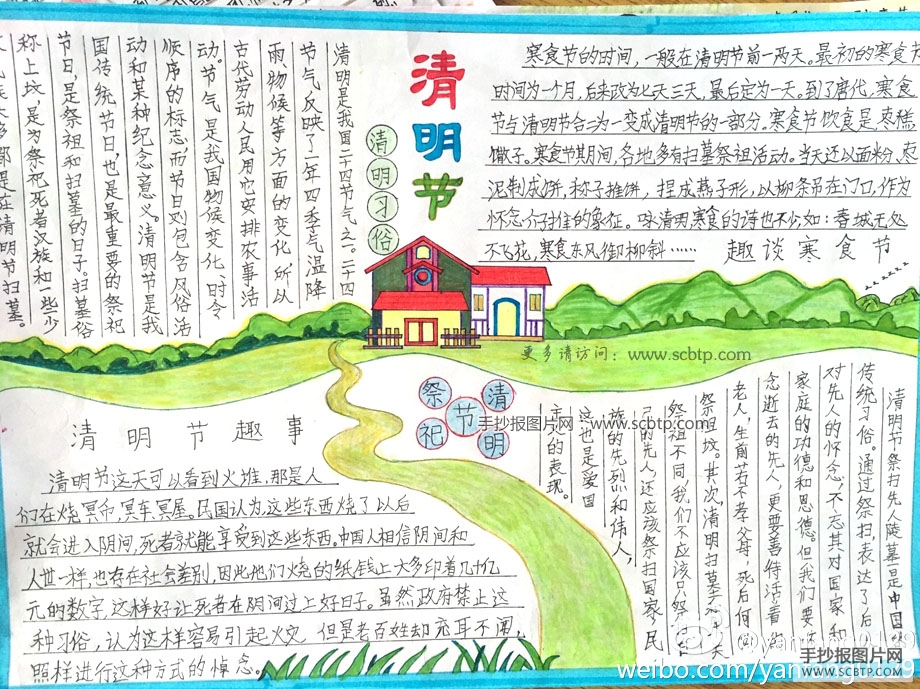 清明节
清明习俗
清明是我国二十四节气之一。二十四
节气反映了一年四季气温降
雨、物候等方面的变化,所以
古代劳动人民用它安排农事活
动。节气是我国物候变化、时令
顺序的标志,而节日则包含风俗活
动和某种纪念意义。清明节是我
国传统节日,也是最重要的祭祀
节日,是祭祖和扫墓的日子。扫墓俗
称上坟,是为祭祀死者汉族和一些少
民族大多都是在清明节扫墓。
寒食节的时间,一般在清明节前一两天。最初的寒食节
时间为一个月,后来改为七天三天,最后定为一天。到了唐代,寒食
节与清明节合二为一变成清明节的一部分。寒食节饮食是,枣糕
馓子。寒食节期间,各地多有扫墓祭祖活动。当天还以面粉、枣
泥制成饼,称子推饼,捏成燕子形,以柳条吊在门口,作为
怀念介子推的象征。咏清明,寒食的诗也不少如:春城无处
不飞花,寒食东风御柳斜……
趣谈寒食节
更多请访问:www.scbtp.com
清明节祭祀
手抄报图片网 www.scbtp.com
清明节趣事
清明节这天可以看到火堆,那是人
们在烧冥币,冥车,冥屋。民国认为这些东西烧了以后
就会进入阴间,死者就能享受到这些东西。中国人相信阴间和
人世一样,也存在社会差别,因此他们烧的纸钱上大多印着几十亿
元的数字,这样好让死者在阴间过上好日子。虽然政府禁止这
种习俗,认为这样容易引起火灾,但是老百姓却充耳不闻,
照样进行这种方式的悼念。
清明节祭扫先人陵墓是中国的
传统习俗。通过祭扫,表达了后
对先人的怀念,不忘其对国家和
家庭的功德和恩德。但我们要怀
念逝去的先人,更要善待活着的
老人,生前若不孝父母,死后何
祭祖坟。其次,清明扫墓 天
祭祖不同,我们不应该只祭
己的先人,还应该祭扫国家、民
族的先烈和伟人,
这也是爱国
主义的表现。
手抄报图片网
WWW.SCBTP.COM